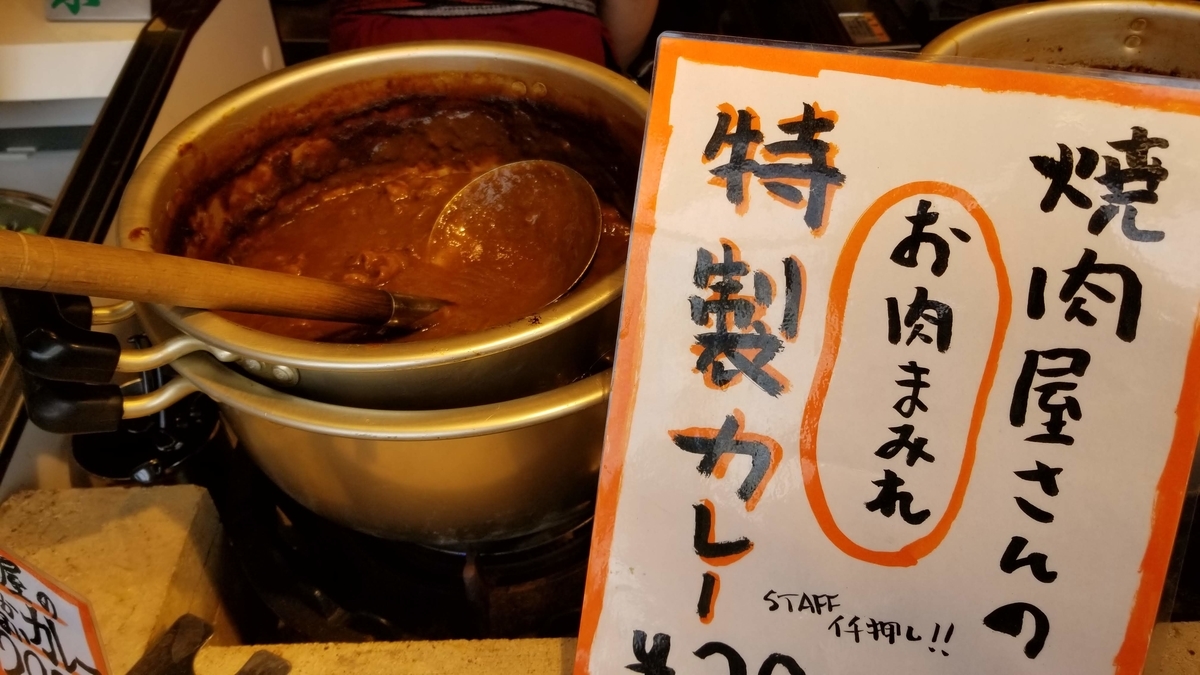 焼肉屋さんの
お肉まみれ
特製カレー
STAFF
イチ押し!!
屋の
カレー